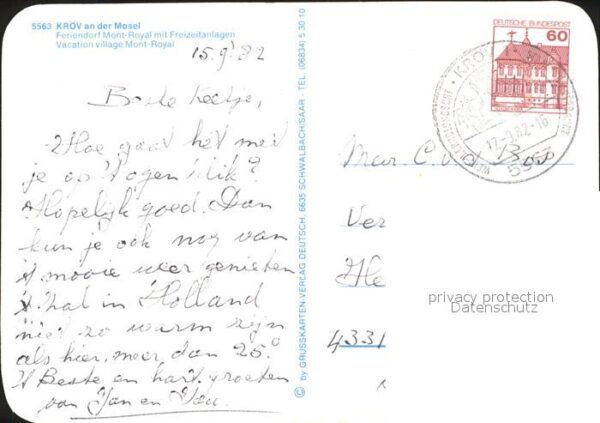 5563 KRÖV an der Mosel
Feriendorf Mont-Royal mit Freizeitanlagen
Vacation village Mont-Royal
15.9.'82
Beste Keetje,
Hoe gaat het met
je op 't ogenblik?
Hopelijk goed. Dan
kun je ook nog van
't mooie weer genieten
't Zal in Holland
niet zo warm zijn
als hier, meer dan 25°.
't Beste en hart. groeten
van Jan en
© by GRUSSKARTEN-VERLAG DEUTSCH, 6635 SCHWALBACH/SAAR - TEL. (06834) 5 30 10
DEUTSCHE BUNDESPOST
60
KRÖV
17.-9.82-16
5563
Mevr. C. v. Bos
Ver
He
4331
privacy protection
Datenschutz